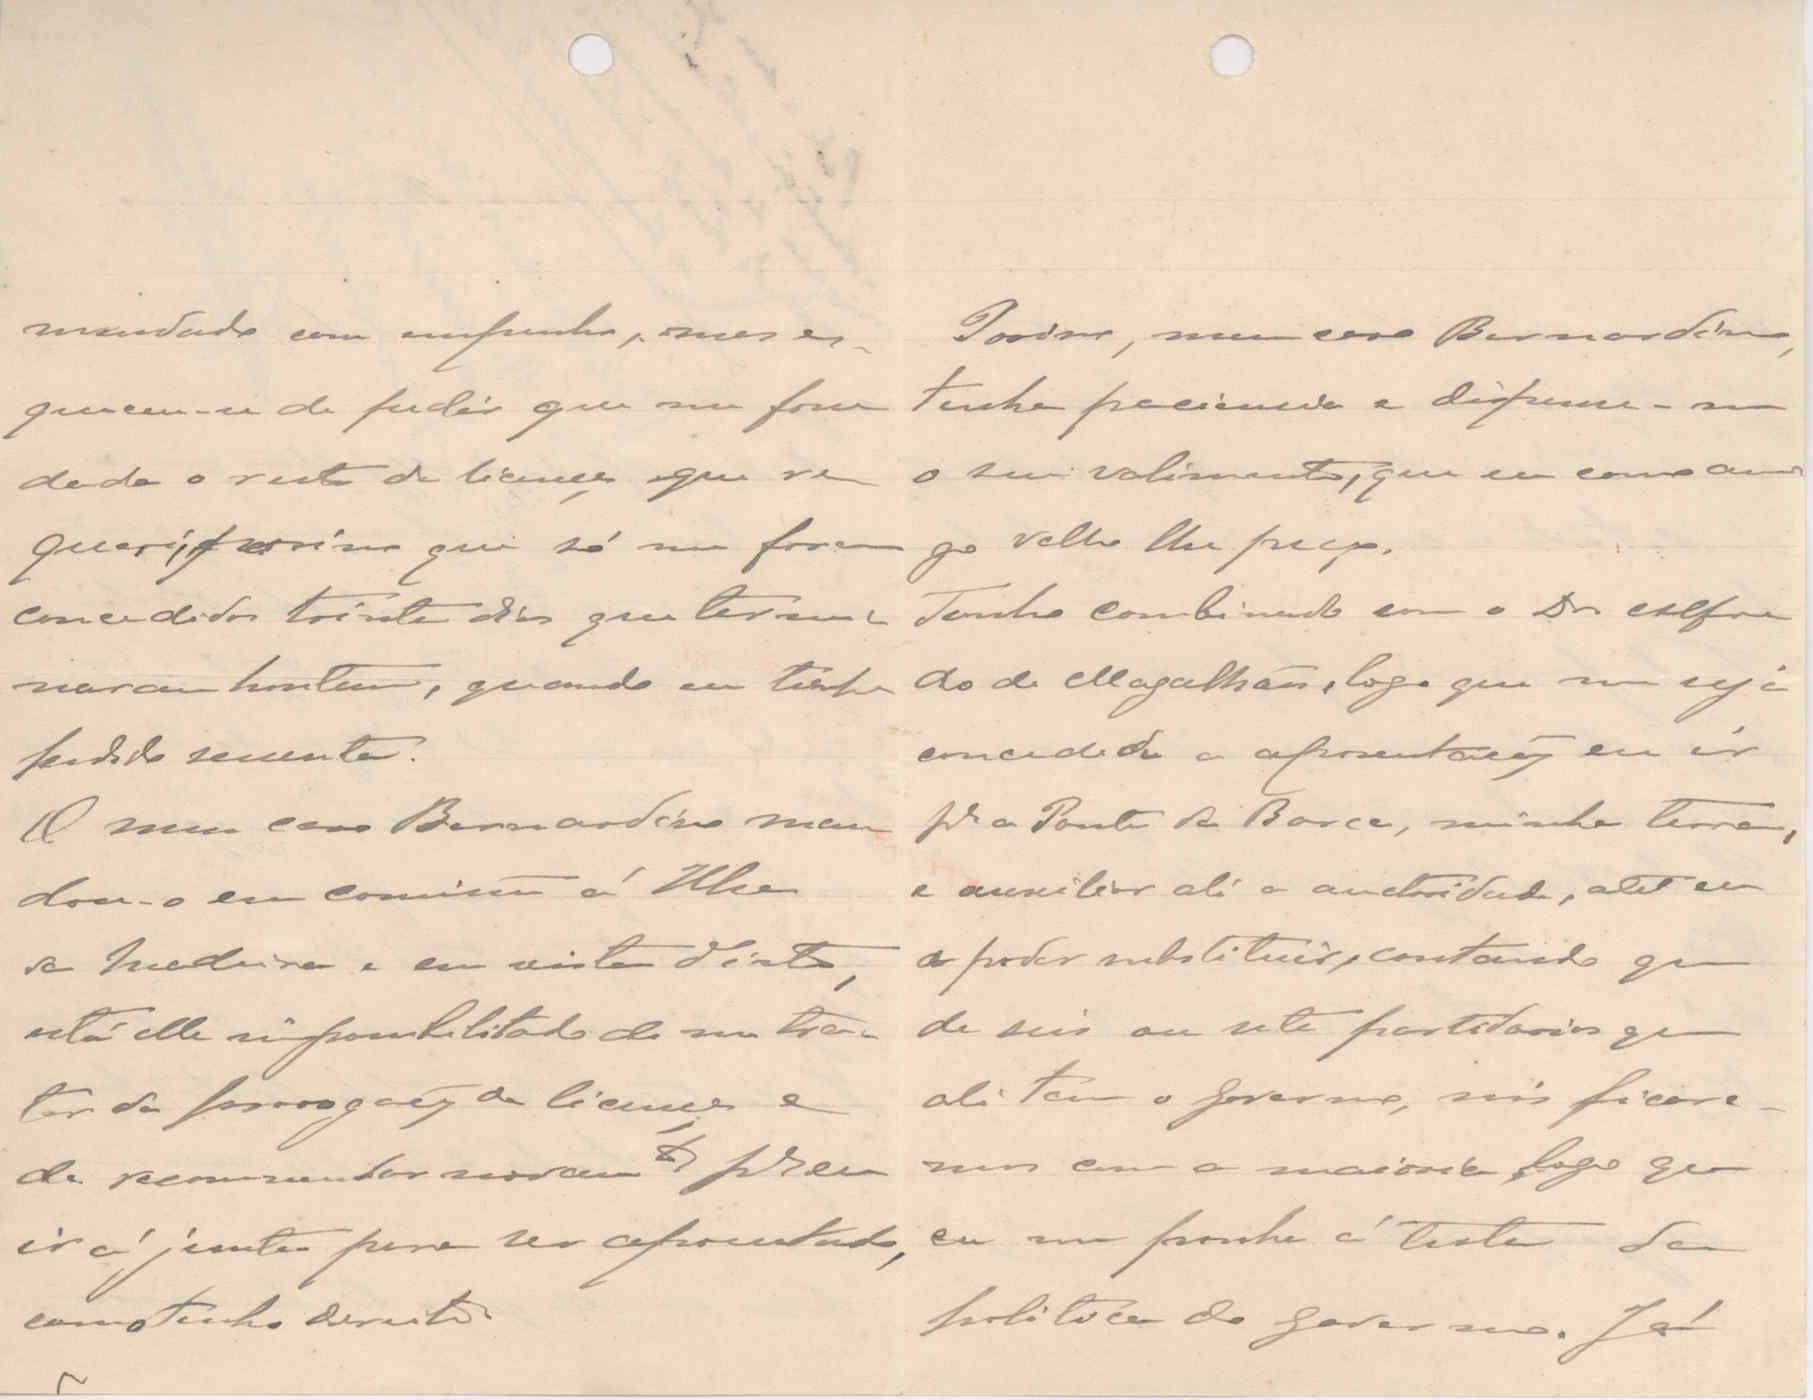 mendado com empenho, mas es-
queceu-se de pedir que me fosse
dado o resto da licença que re
queri, porisso que só me foram
concedidos trinta dias que termi
naram hontem, quando eu tinha
pedido sessenta.
O meu caro Bernardino man
dou-o em comissão á Ilha
da Madeira e em vista d'isto,
está elle impossibilitado de me tra-
tar da prorogação da licença e
de recommendar p.ª eu
ir á junta para ser aposentado,
como tenho direito.
Porisso, meu caro Bernardino,
tenha paciencia e dispense-me
o seu valimento, que eu como ami
go velho lhe peço.
Tenho combinado com o Dr Alfre
do de Magalhães, logo que me seja
concedida a aposentação eu ir
p.ª a Ponte da Barca, minha terra,
e auxiliar ali a auctoridade, até eu
a poder substituir, contando que
de seis ou sete partidarios que
ali tem o governo, nós ficare-
mos com a maioria, logo que
eu me ponha á testa da
politica do governo. Já